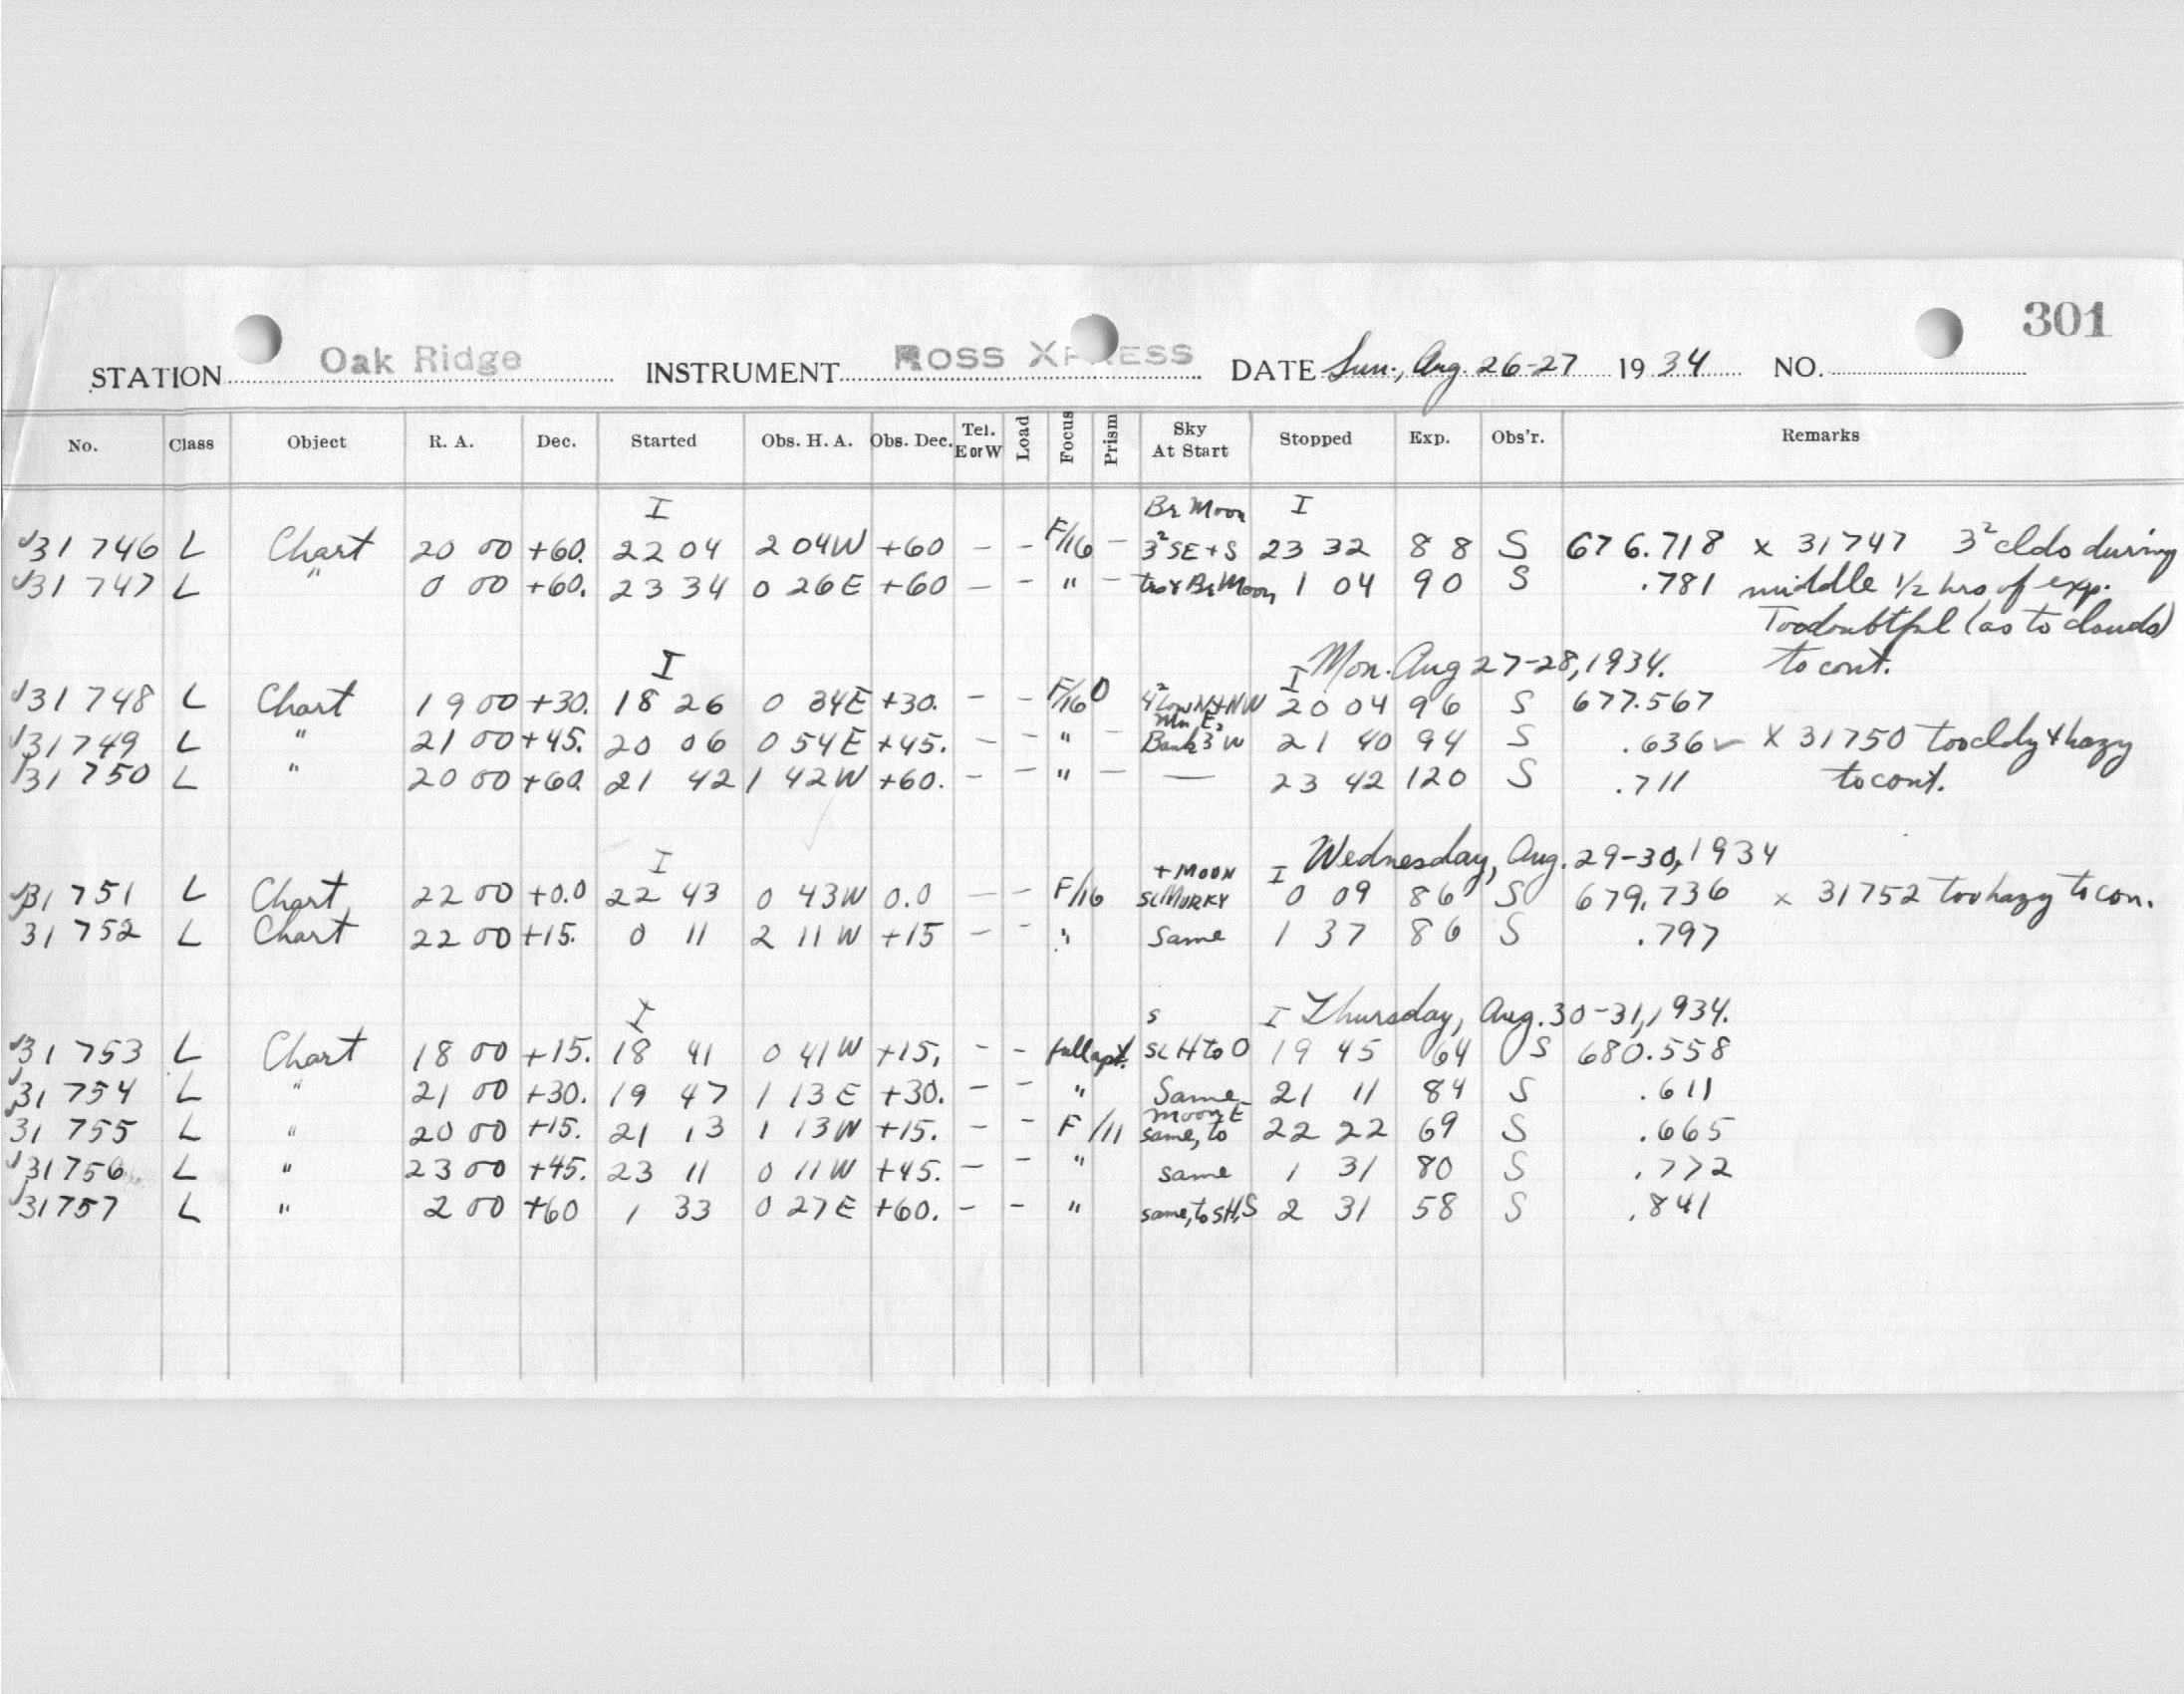 301
STATION Oak Ridge INSTRUMENT ROSS XPRESS DATE Sun., Aug. 26-27 1934 NO.
No. Class Object R. A. Dec. Started Obs. H. A. Obs. Dec. Tel. E or W Load Focus Prism Sky At Start Stopped Exp. Obs'r. Remarks
I Br Moon I
31 746 L Chart 20 00 +60. 22 04 2 04W +60 - - F/16 - 3² SE + S 23 32 88 S 676.718 x 31747 3² clds during
31 747 L " 0 00 +60. 23 34 0 26E +60 - - " - Br Moon 1 04 90 S .781 middle 1/2 hrs of exp.
Too doubtful (as to clouds)
I I Mon. Aug 27-28, 1934. to cont.
31 748 L Chart 19 00 +30. 18 26 0 34E +30. - - F/16 0 4² Low N+NW 20 04 96 S 677.567
Mn E²
31749 L " 21 00 +45. 20 06 0 54E +45. - - " - Bank 3² W 21 40 94 S .636 ✓ x 31750 too cldy + hazy
31 750 L " 20 00 +60. 21 42 1 42W +60. - - " - — 23 42 120 S .711 to cont.
I I Wednesday, Aug. 29-30, 1934
+ MOON
31 751 L Chart 22 00 +0.0 22 43 0 43W 0.0 - - F/16 SL MURKY 0 09 86 S 679.736 x 31752 too hazy to con.
31 752 L Chart 22 00 +15. 0 11 2 11W +15 - - " Same 1 37 86 S .797
I s I Thursday, Aug. 30-31, 1934.
31 753 L Chart 18 00 +15. 18 41 0 41W +15. - - full apt. SL H to O 19 45 64 S 680.558
31 754 L " 21 00 +30. 19 47 1 13E +30. - - " Same 21 11 84 S .611
moon E
31 755 L " 20 00 +15. 21 13 1 13W +15. - - F/11 same, to 22 22 69 S .665
31756 L " 23 00 +45. 23 11 0 11W +45. - - " same 1 31 80 S .772
31757 L " 2 00 +60 1 33 0 27E +60. - - " same, to SH, S 2 31 58 S .841